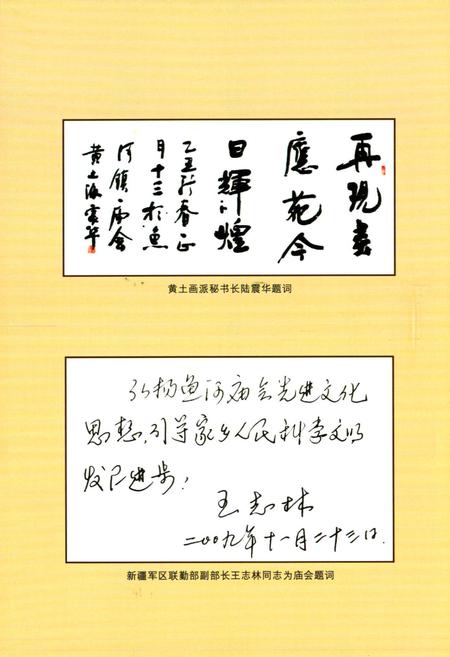 再现
應苑今
日輝煌
乙丑新春正
月十三於魚
河镇庙会
黄土
黄土画派秘书长陆震华题词
弘扬鱼河庙会先进文化
思想,引导家乡人民科学文明
发展进步!
王志林
二00九年十一月二十三日.
新疆军区联勤部副部长王志林同志为庙会题词